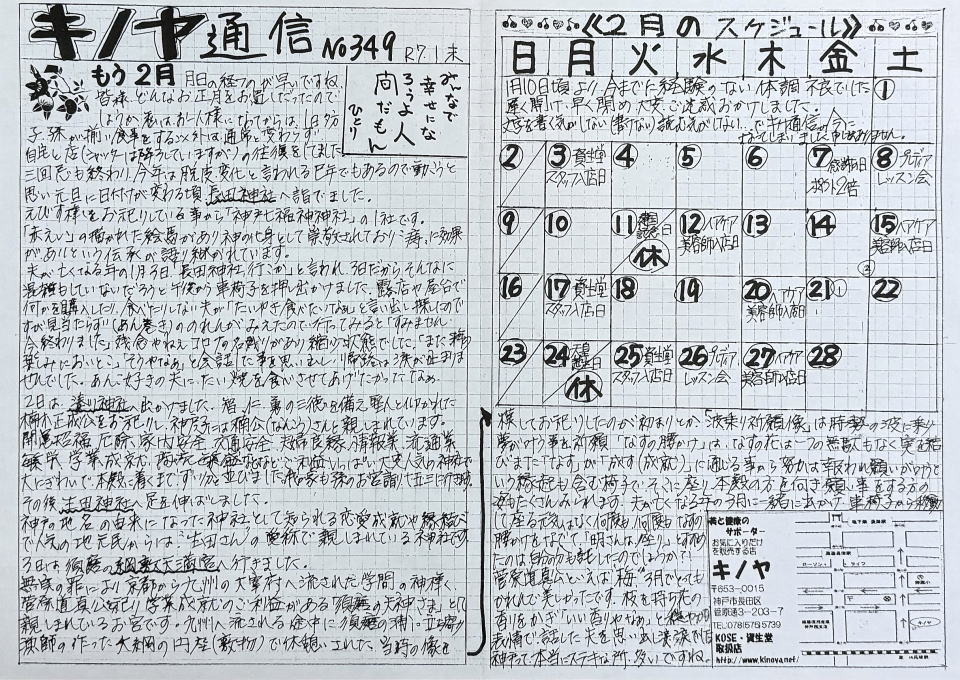 キノヤ通信 No349 R7.1末
みんなで
幸せにな
ろうよ 人
間だもん
ひとり
もう2月 月日の経つのが早いですね。
皆様、どんなお正月をお過ごしだったので
しょうか。私はお一人様になってからは、1日夕方
子、孫が揃い食事をする以外は通常と変わらず
自宅と店(シャッターは降ろしていますが)の往復をしてました。
三回忌も終わり、今年は脱皮、変化と言われる巳年でもあるので動こうと
思い元旦に日付けが変わる頃 長田神社へ詣でました。
えびす様をお祀りしている事から「神戸七福神神社」の1社です。
「赤えい」の描かれた絵馬があり神の化身として崇敬されており に効果
があるという伝承が語り継がれています。
夫が亡くなる年の1月3日、「長田神社行こか」と言われ、3日だからそんなに
混雑もしていないだろうと午後から車椅子を押し出かけました。露店や屋台で
何かを購入したり、食べたりしない夫が「たいやき食べたいなぁ」と言い出し探したので
すが見当たらず(あん巻き)ののれんがみえたので行ってみると「すみません
今終わりました」 「また来年の
楽しみにおいとこ」「そりゃなぁ」と会話した事を思い出し、帰路は涙が止まりま
せんでした。あんこ好きの夫に、たい焼を食べさせてあげたかったなぁ
2日は、湊川神社へ出かけました。智、仁、勇の三徳を備え聖人と仰がれた
楠木正成公をお祀りし、神戸っ子には楠公(なんこう)さんと親しまれています。
開運招福 厄除 家内安全 交通安全 夫婦良縁、情報業、流通業
学業成就、商売 などなど ご利益いっぱい 大変人気の神社で
大にぎわいで、本殿に着くまでずいぶんと並びました。我が家も孫のお宮詣りで五三に行きました。
その後、生田神社へ足を伸ばしました。
神戸の地名の由来になった神社として知られる恋愛成就や縁結び
で人気の地元民からは、「生田さん」の愛称で親しまれている神社です。
3日は、須磨の綱敷天満宮へ行きました。
無実の罪により京都から九州の太宰府へ流された学問の神様、
菅原道真公を祀り学業成就のご利益がある「須磨の天神さま」として
親しまれているお宮です。九州へ流される途中に須磨の浦に立ち寄り
漁師の作った大綱の円座(敷物)で休憩された、当時の像を
《2月のスケジュール》
日 月 火 水 木 金 土
1月10日頃より、今までに経験のない体調不良でした
遅く開け、早く閉め 大変ご迷惑おかけしました。
文字を書く気がしない(書けない)読む気がしない、でキノヤ通信が今に
なってしまいました。申し訳ありません。
1
2 3 資生堂 スタッフ入店日 4 5 6 7 感謝日 ポイント2倍 8 プレディア レッスン会
9 10 11 建国記念日 休 12 ヘアケア 美容師入店日 13 14 15 ヘアケア 美容師入店日
16 17 資生堂 スタッフ入店日 18 19 20 ヘアケア 美容師入店日 21 22
23 24 振替休日 休 25 資生堂 スタッフ入店日 26 プレディア レッスン会 27 ヘアケア 美容師入店日 28
模してお祀りしたのが初まりとか「波乗り祈願像」は時勢の波に乗り
夢が叶う事を祈願 「なすの腰かけ」は、なすの花は一つの無駄もなく実を結
びまた「なす」が「成す(成就)」に通じる事から努力は報われ願いが叶うと
いう縁起も含む椅子で、そこに座り、本殿の方を向き願い事をする方の
姿もたくさんみられます。夫が亡くなる年の3月に一緒に出かけて車椅子から移動
して座る元気はなく何度も何度もなすの
腰かけをなでて、「明さんは、座り」とすすめ
たのは自分のも託したのでしょうか?
菅原道真公といえば“梅”3月でとても
きれいで美しかったです。枝を持ち花の
香りをかぎ「いい香りやなぁ」と穏やかな
表情で話した夫を思い出し、涙、涙でした。
神戸って本当にステキな所、多いですね。
美と健康の
サポーター
お気に入りだけ
を販売する店
キノヤ
〒653-0015
神戸市長田区
菅原通3-203-7
TEL078(576)5739
KOSE・資生堂
取扱店
http://www.kinoya.net/
地下鉄 長田駅
高速長田駅
ローソン
ライフ
キノヤ